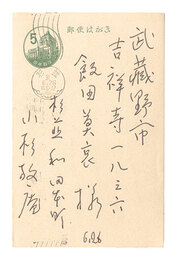 郵便はがき
5
武蔵野市
吉祥寺一八三六
飯田莫哀様
杉並和田本町
小杉放庵
6.26